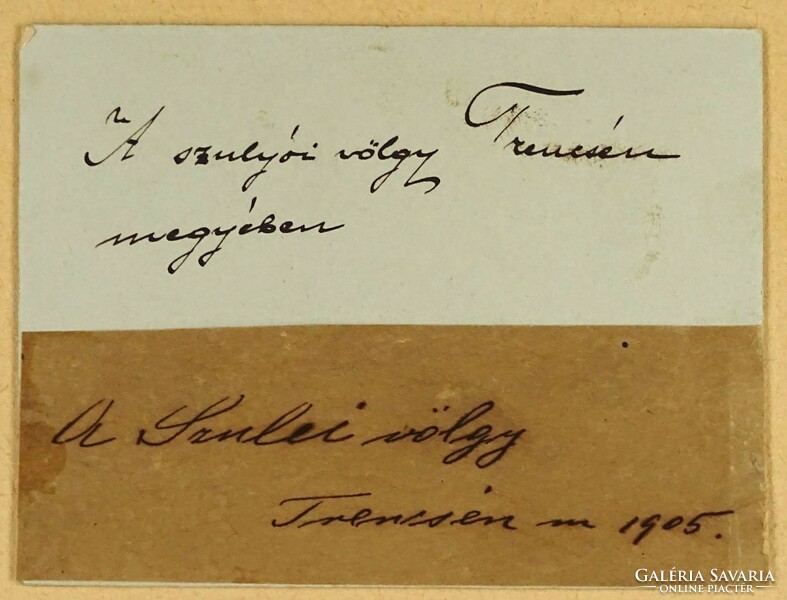 A szulyói völgy Trencsén
megyében
A Szulei völgy
Trencsén m 1905.
GALÉRIA SAVARIA
ONLINE PIACTÉR